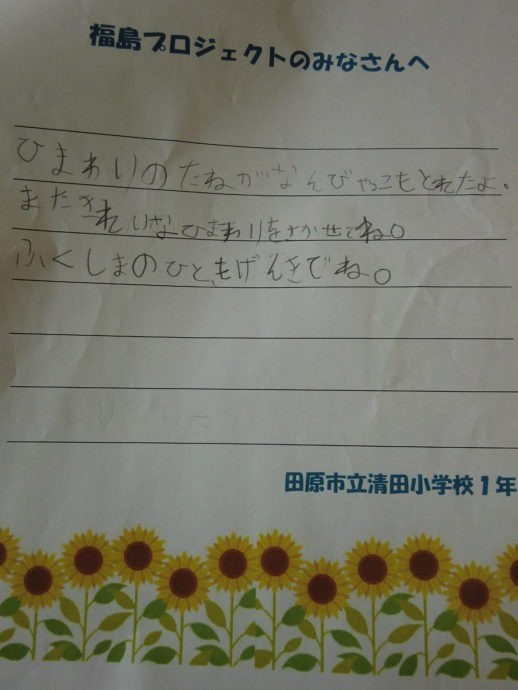 福島プロジェクトのみなさんへ
ひまわりのたねがなんびゃっこもとれたよ。
またきれいなひまわりをさかせてね。
ふくしまのひともげんきでね。
田原市立清田小学校1年